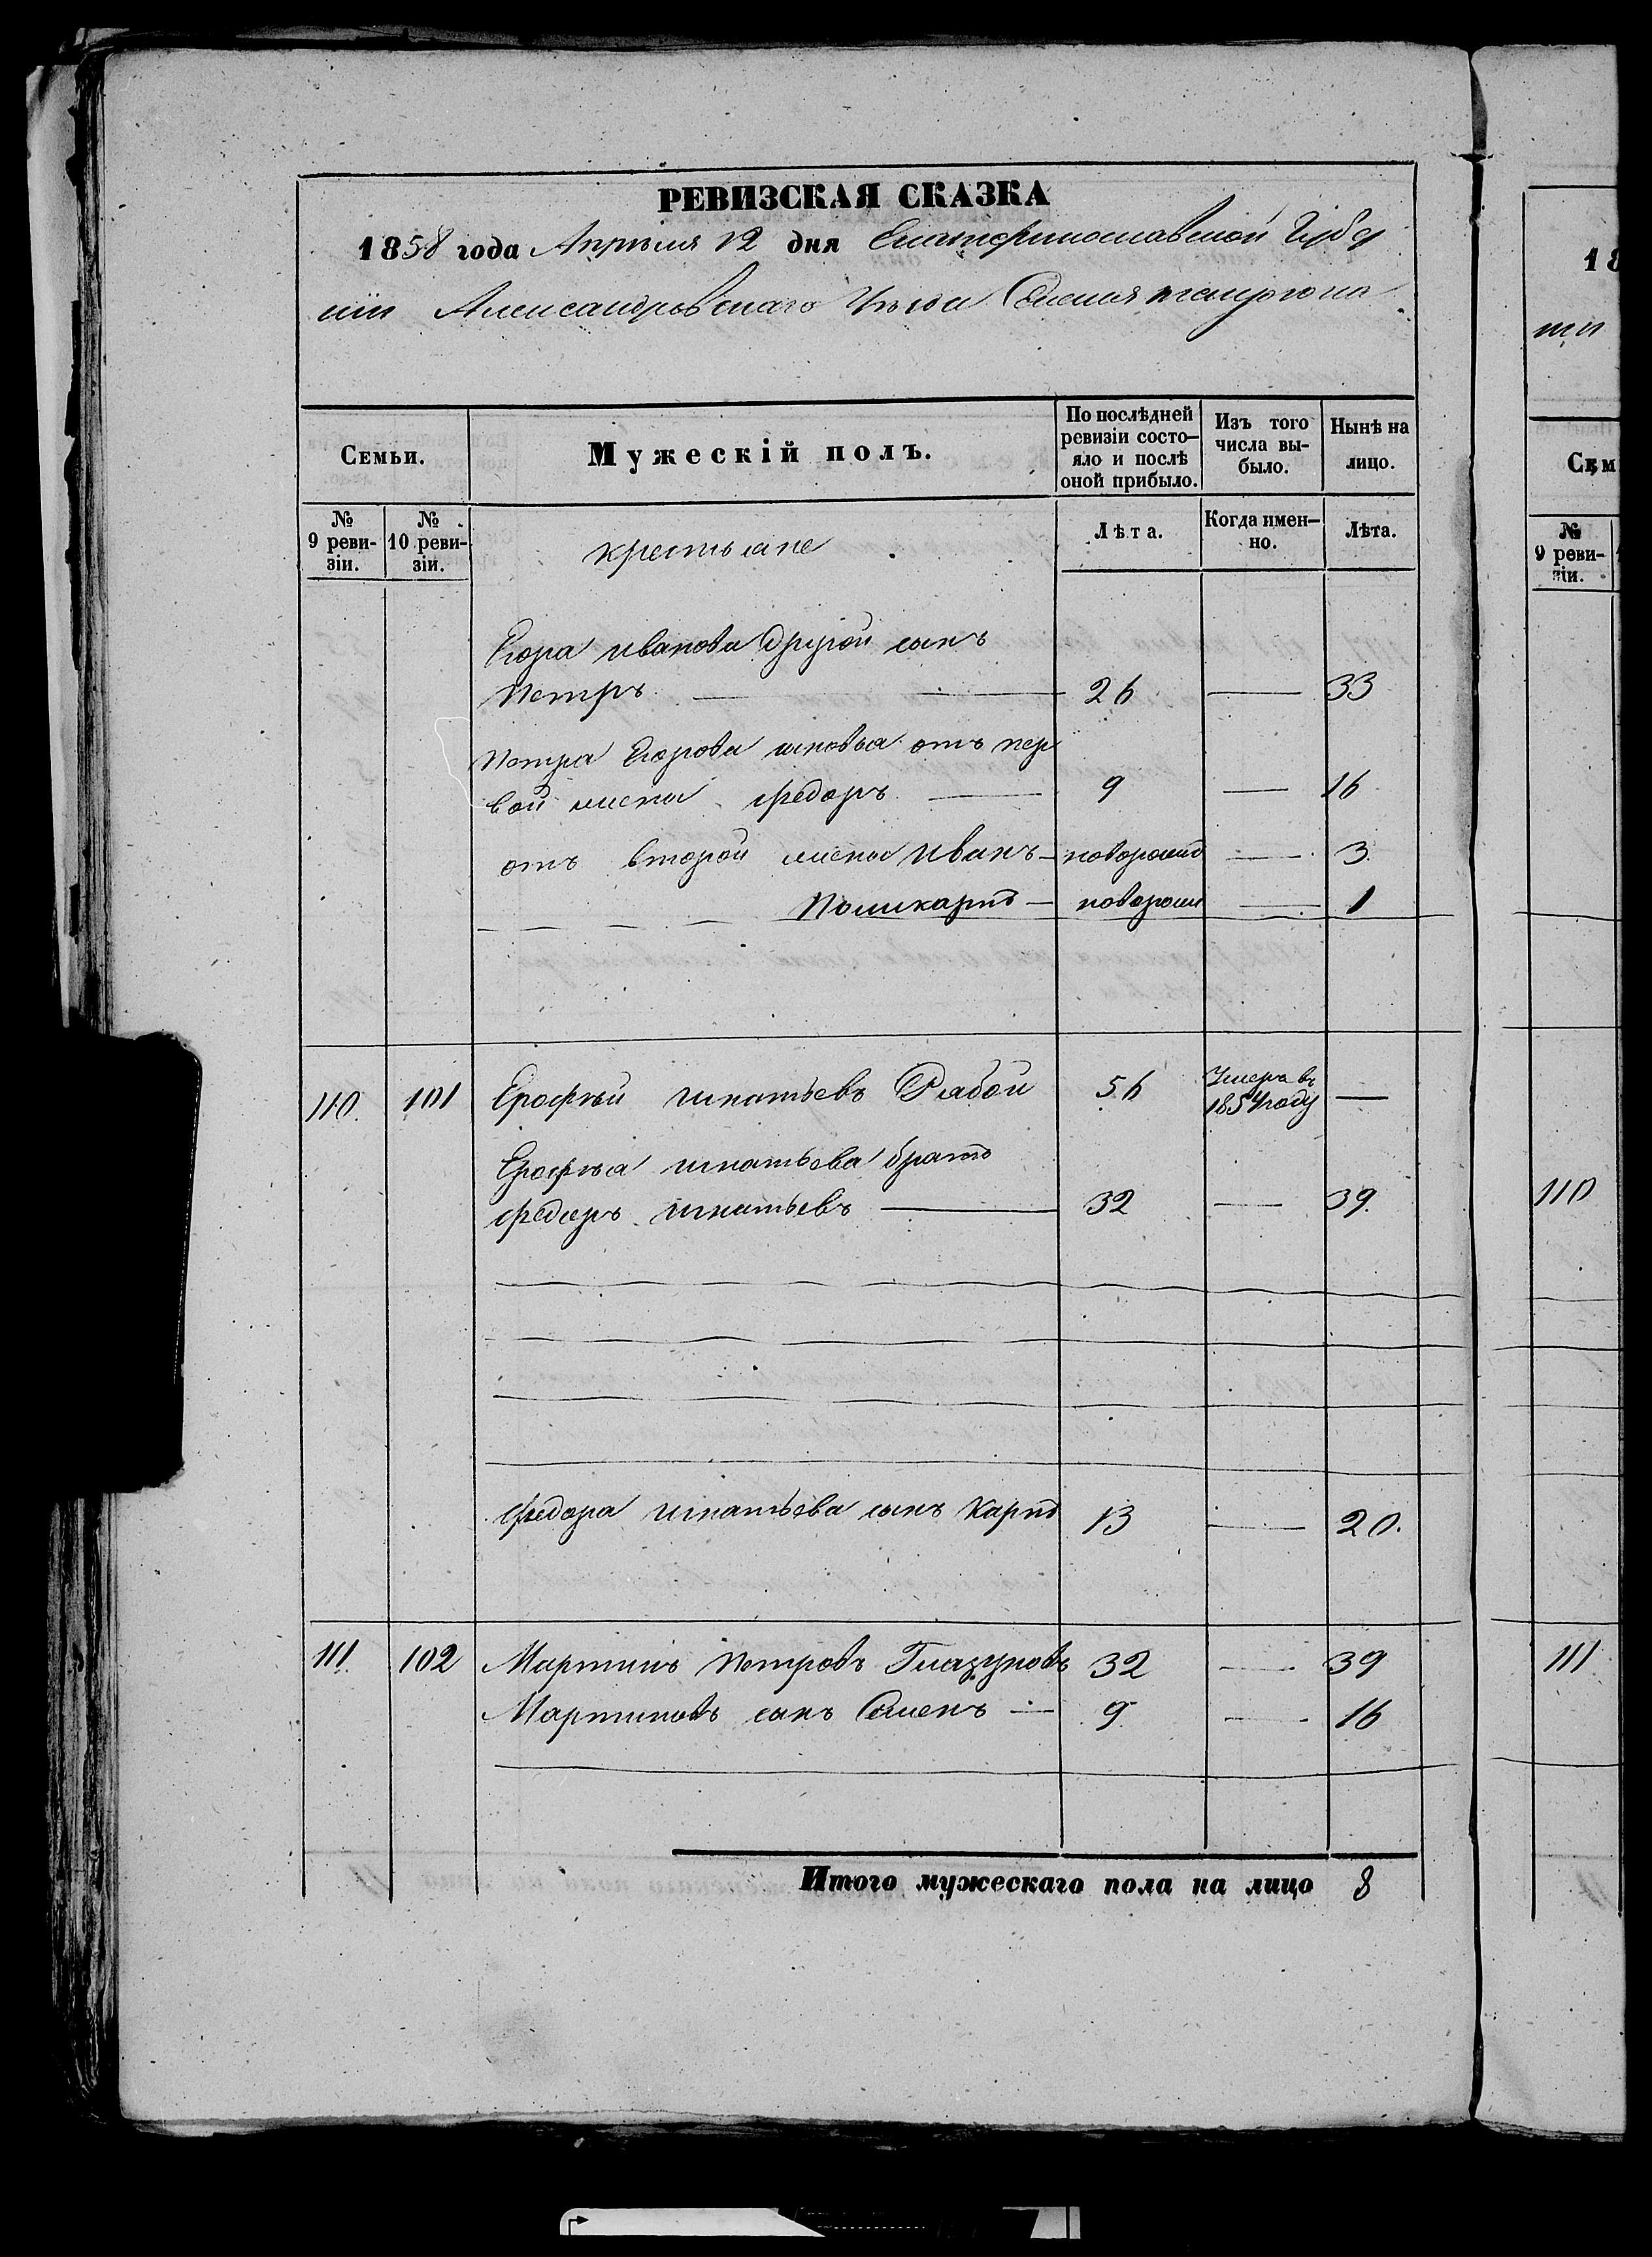 РЕВИЗСКАЯ СКАЗКА
1858 года Апрѣля 12 дня Екатеринославской Губер
ніи Александровскаго Уѣзда Селенія
Семьи.
Мужескій полъ.
По послѣдней ревизіи состо-яло и послѣ оной прибыло.
Изъ того числа вы-было.
Нынѣ на лицо.
№ 9 реви-зіи.
№ 10 реви-зіи.
крестьяне
Лѣта.
Когда имен-но.
Лѣта.
Егора Иванова Другой сынъ
Петръ — 26 — 33
Петра Егорова сыновья отъ пер
вой жены Федоръ — 9 — 16
отъ второй жены Иванъ — новорожд — 3
Поликарпъ — новорожд — 1
110. 101 Ерофѣй Игнатьевъ Рябой 56 Умеръ въ 1854 году —
Ерофѣя Игнатьева братъ
Федоръ Игнатьевъ — 32 — 39.
Федора Игнатьева сынъ Карпъ 13 — 20.
111. 102 Мартинъ Петровъ Глазуновъ 32 — 39
Мартиновъ сынъ Семенъ — 9 — 16
Итого мужескаго пола на лицо 8
18
Сем
№ 9 реви-зіи.
110
111